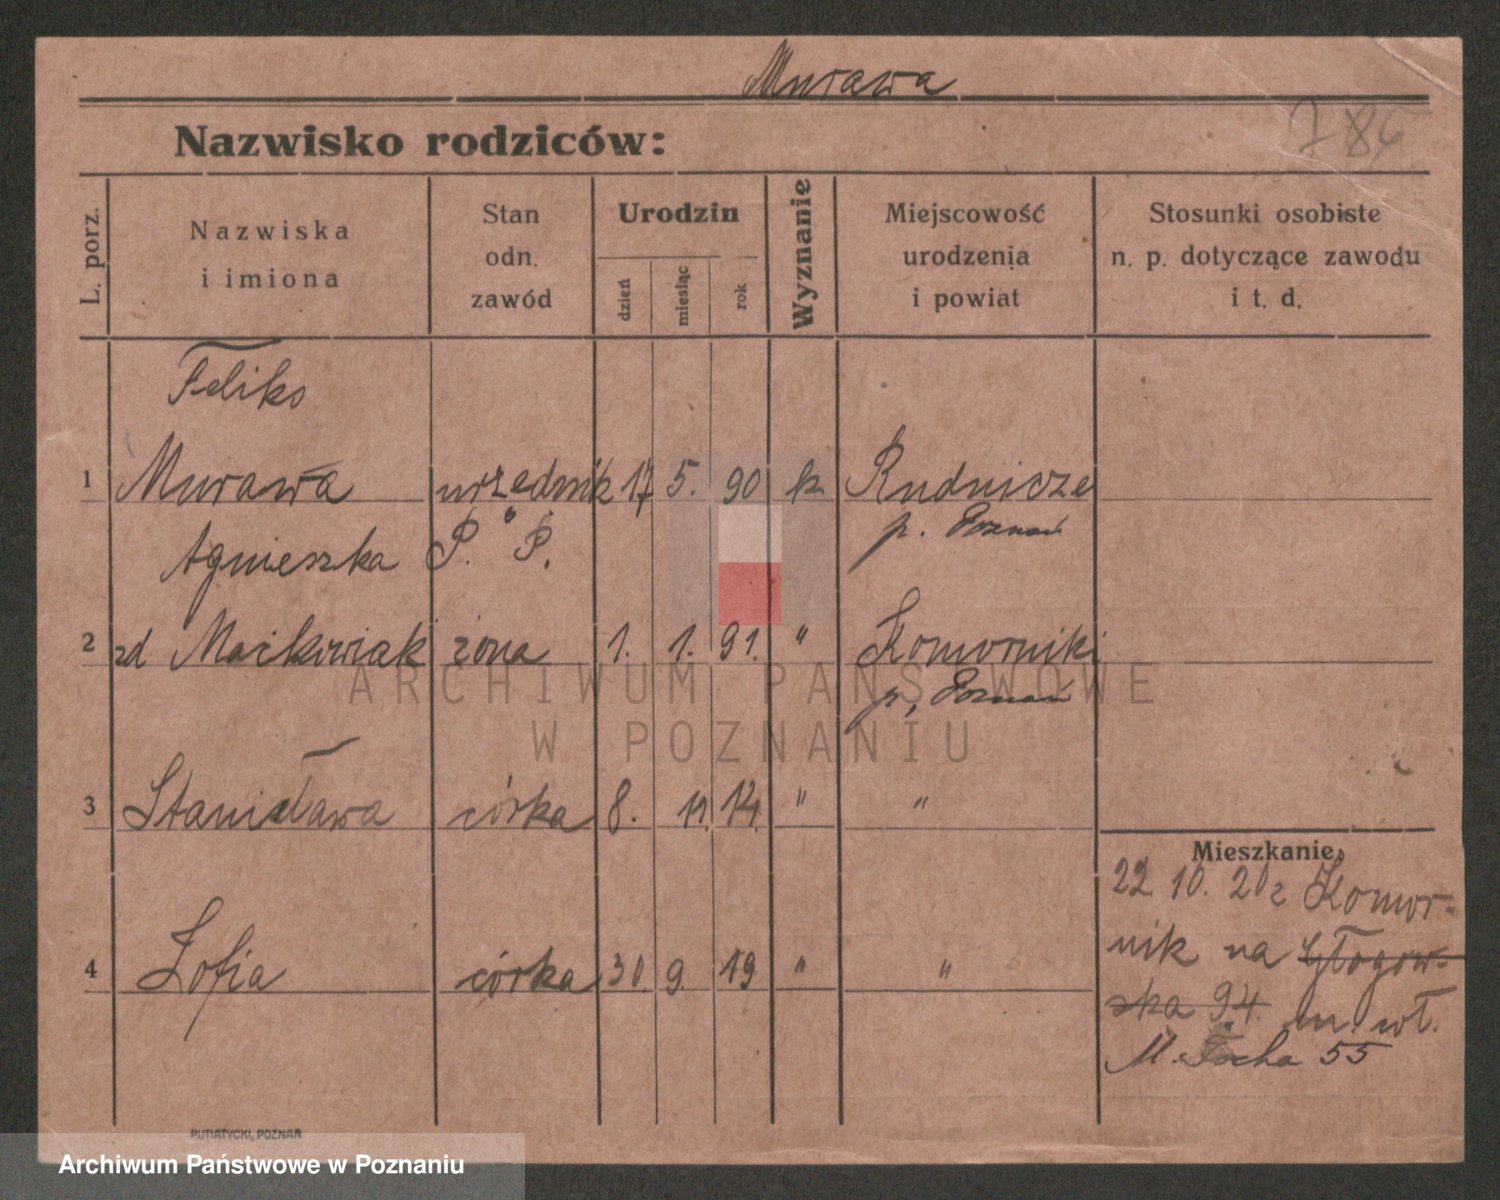 Murawa
Nazwisko rodziców:
786
L. porz.
Nazwiska
i imiona
Stan
odn.
zawód
Urodzin
dzień
miesiąc
rok
Wyznanie
Miejscowość
urodzenia
i powiat
Stosunki osobiste
n. p. dotyczące zawodu
i t. d.
Feliks
1 Murawa urzędnik 17 5. 90 k Rudnicze
P. P. p. Poznań
Agnieszka
2 zd Maćkowiak żona 1. 1. 91. " Komorniki
p. Poznań
3 Stanisława córka 8. 11. 14. " "
4 Zofia córka 30. 9. 19 " "
Mieszkanie
22. 10. 20 z Komor-
nik na Głogow-
ska 94. m. wł.
M. Focha 55
PUTIATYCKI, POZNAŃ
ARCHIWUM PAŃSTWOWE
W POZNANIU
Archiwum Państwowe w Poznaniu